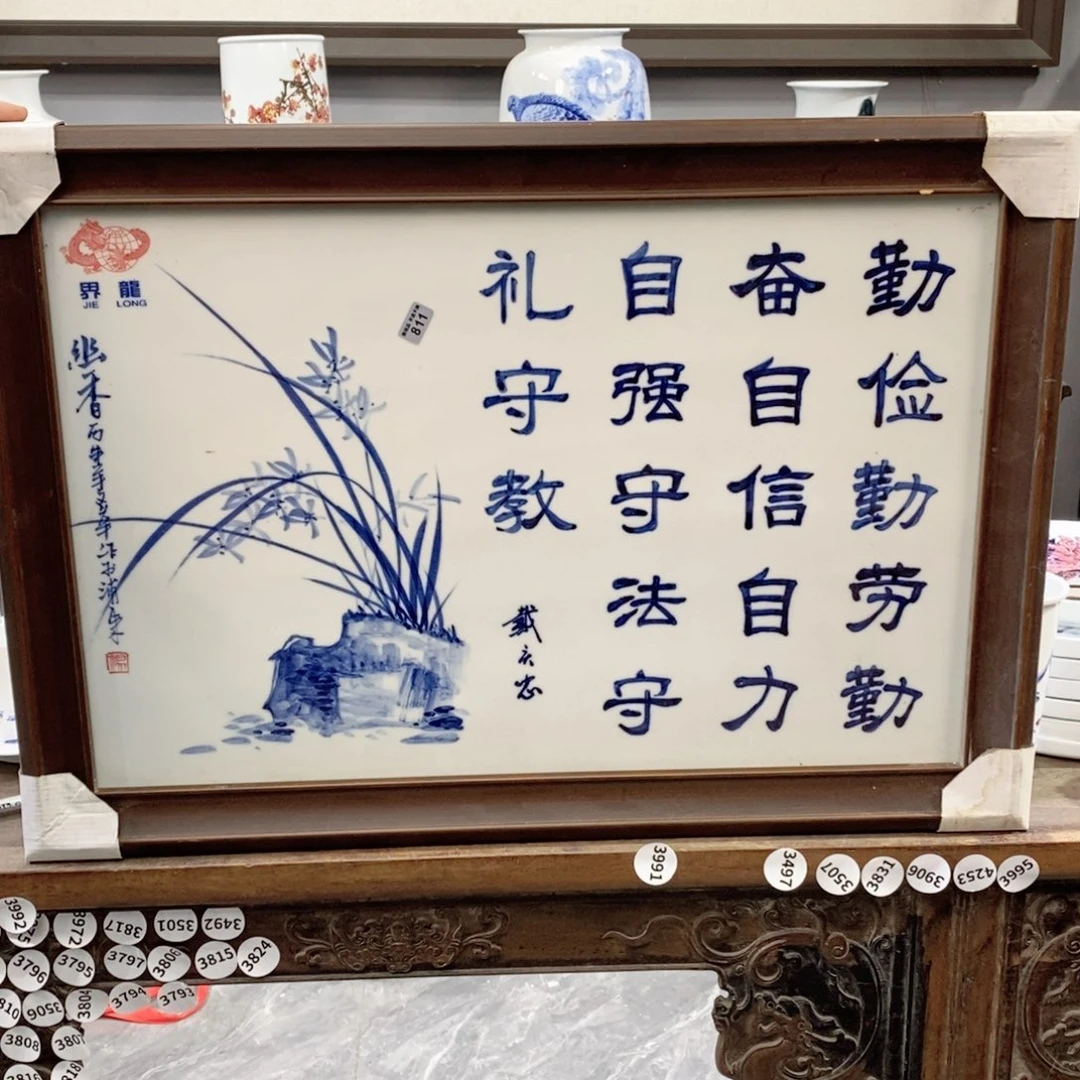 勤俭勤劳勤
奋自信自力
自强守法守
礼守教
戴庆忠
界龍
JIE LONG
幽香
811
3991
3497
3507
3831
3906
4253
3995
3992
3972
3817
3501
3492
3796
3795
3797
3806
3815
3824
3506
3804
3794
3793
3808
3807